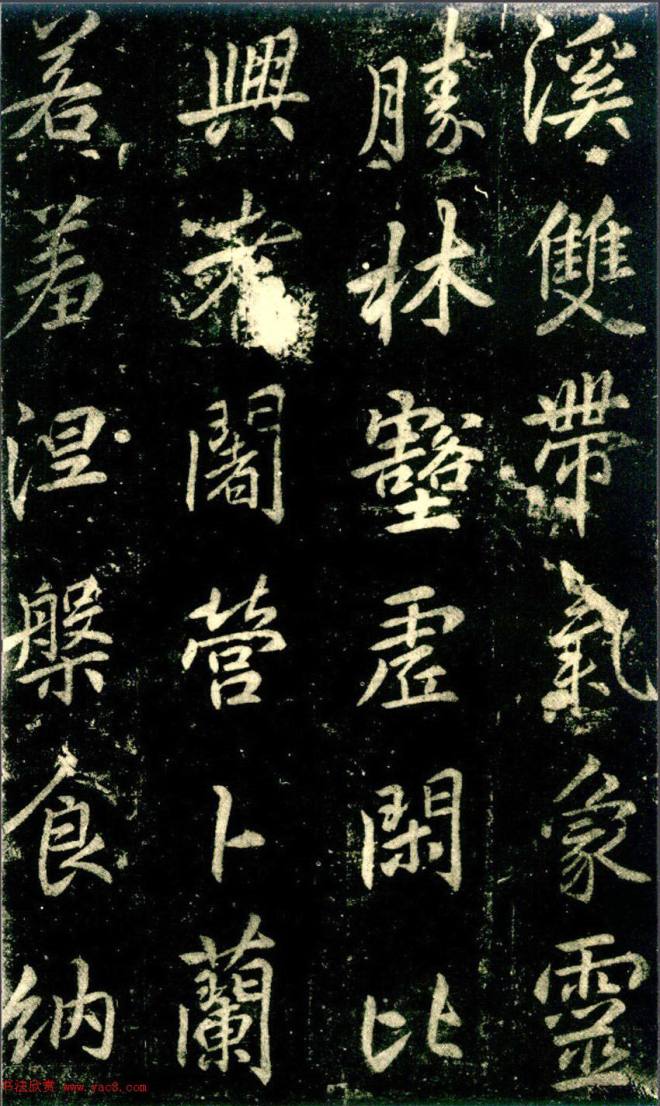 溪雙帶氣象靈
勝林壑虛閑比
興耆闍營卜蘭
若羞涅槃食納
书法欣赏 www.yac8.com